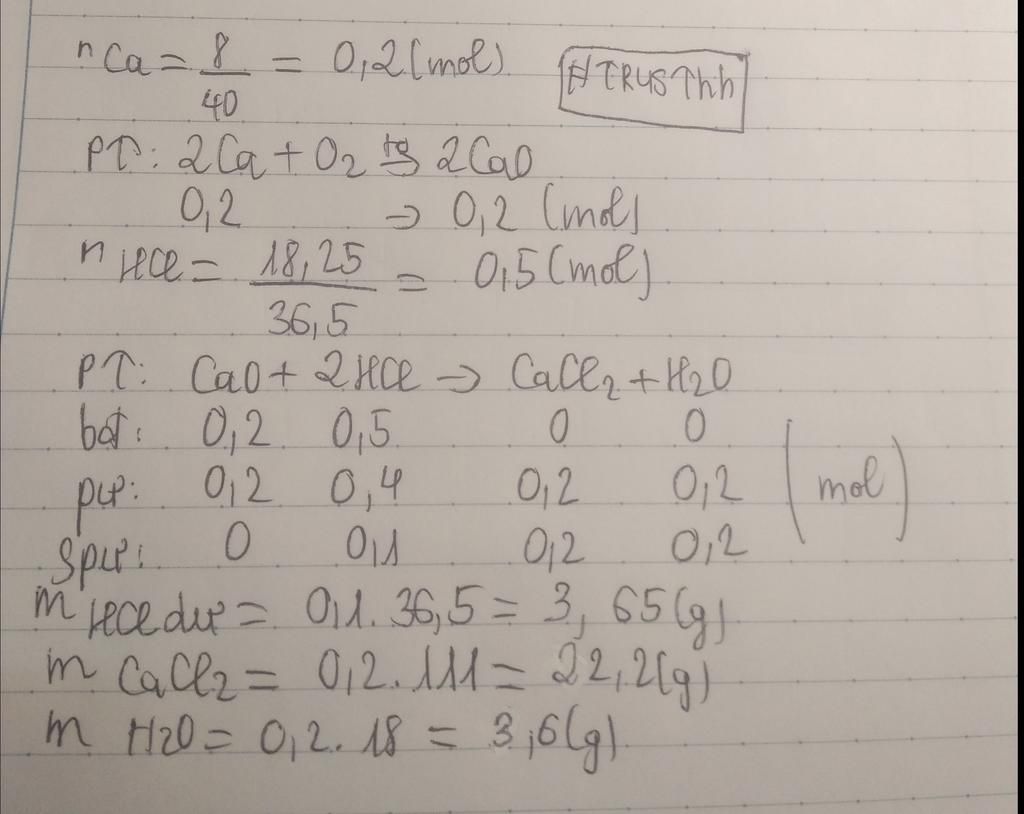 nCa = 8/40 = 0,2 (mol)
#TRUSThh
PT: 2Ca + O2 tº→ 2CaO
0,2 → 0,2 (mol)
nHCl = 18,25/36,5 = 0,5 (mol)
PT: CaO + 2HCl → CaCl2 + H2O
bđ: 0,2 0,5 0 0
pư: 0,2 0,4 0,2 0,2 (mol)
spư: 0 0,1 0,2 0,2
mHCl dư = 0,1.36,5 = 3,65(g)
mCaCl2 = 0,2.111 = 22,2(g)
mH2O = 0,2.18 = 3,6(g)